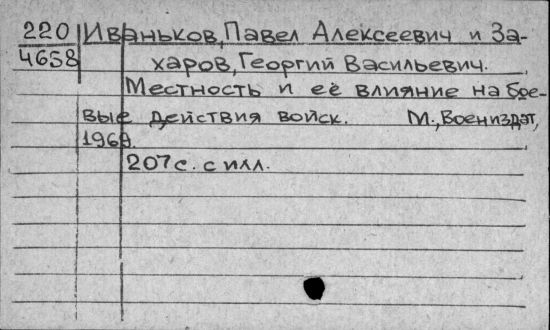 220 Иваньков, Павел Алексеевич и За-
4658 харов, Георгий Васильевич.
Местность и её влияние на бое-
вые действия войск. М., Воениздат,
1969.
207 с. с илл.